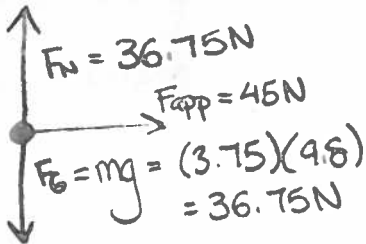 F_N = 36.75N
F_app = 45N
F_G = mg = (3.75)(9.8)
= 36.75N